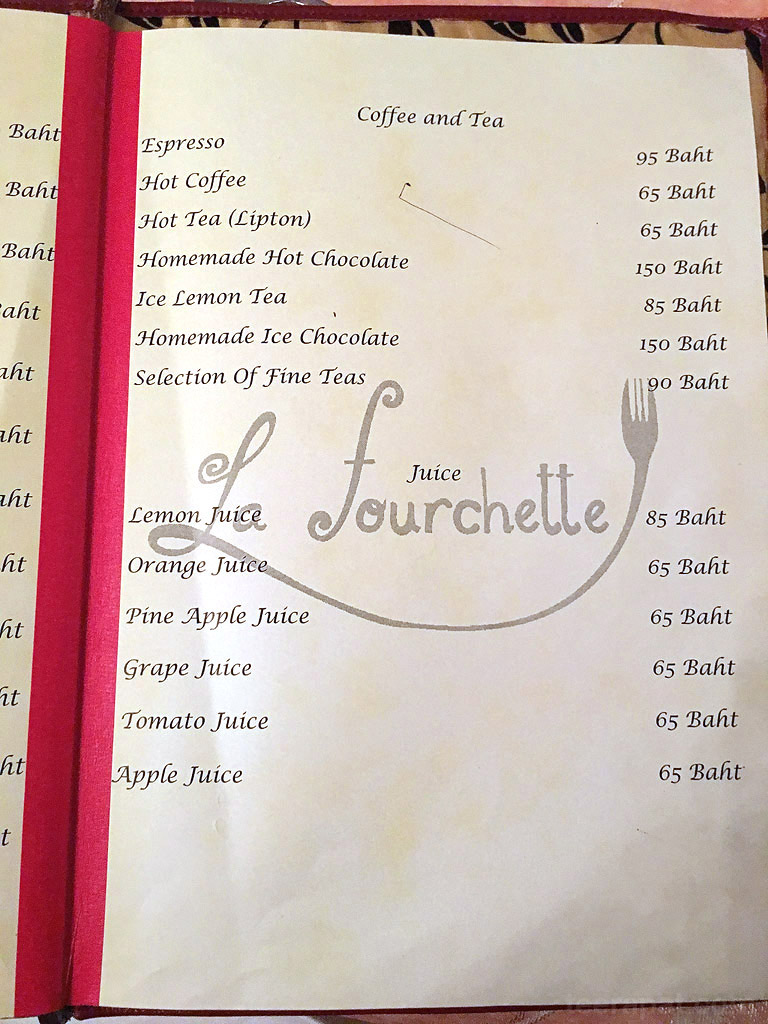 Baht
Baht
Baht
Coffee and Tea
Espresso 95 Baht
Hot Coffee 65 Baht
Hot Tea (Lipton) 65 Baht
Homemade Hot Chocolate 150 Baht
Ice Lemon Tea 85 Baht
Homemade Ice Chocolate 150 Baht
Selection Of Fine Teas 90 Baht
La fourchette
Juice
Lemon Juice 85 Baht
Orange Juice 65 Baht
Pine Apple Juice 65 Baht
Grape Juice 65 Baht
Tomato Juice 65 Baht
Apple Juice 65 Baht